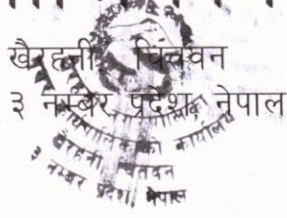 खैरहनी चितवन
३ नम्बर प्रदेश, नेपाल
कार्यपालिकाको कार्यालय
खैरहनी चितवन
३ नम्बर प्रदेश, नेपाल